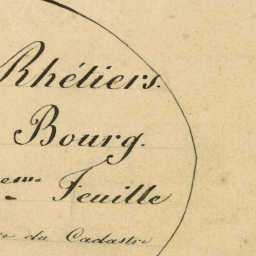 Rhétiers.
Bourg.
eme Feuille
du Cadastre